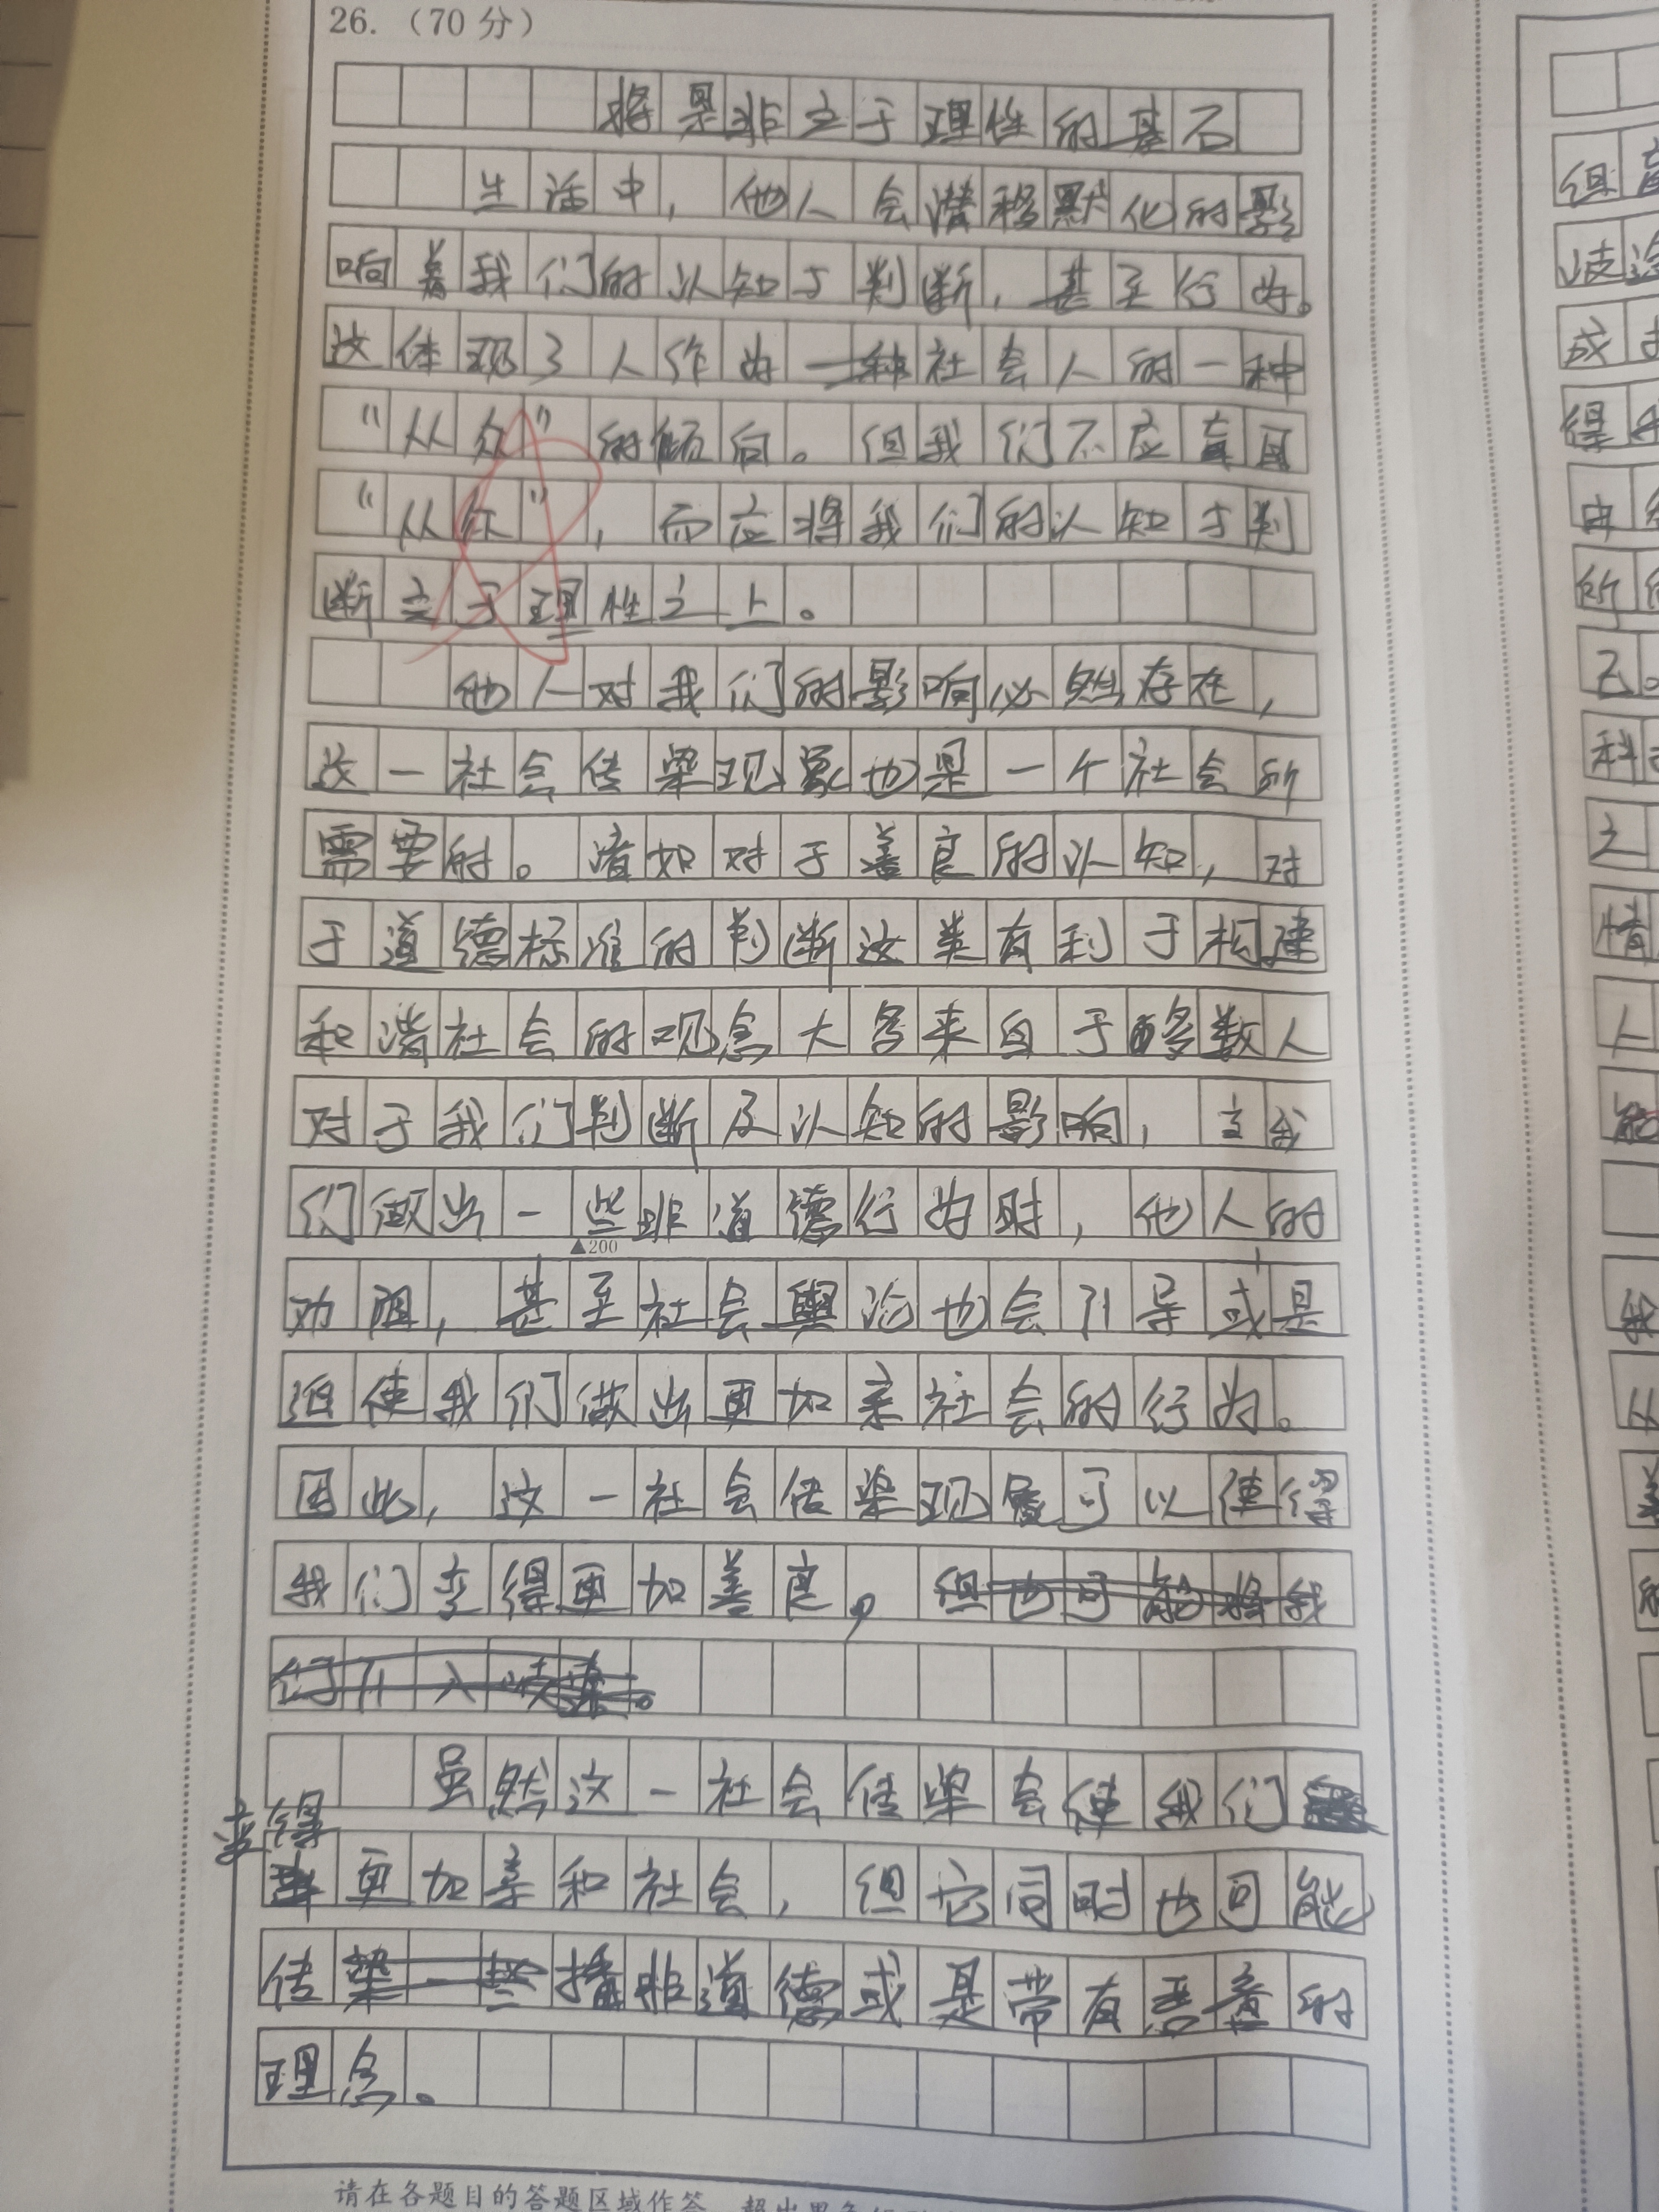 26.（70 分）
将是非立于理性的基石
生活中，他人会潜移默化的影
响着我们的认知与判断，甚至行为。
这体现了人作为一种社会人的一种
“从众”的倾向。但我们不应盲目
“从众”，而应将我们的认知与判
断立于理性之上。
他人对我们的影响必然存在，
这一社会传染现象也是一个社会所
需要的。诸如对于善良的认知，对
于道德标准的判断这类有利于构建
和谐社会的观念大多来自于多数人
对于我们判断及认知的影响，当我
们做出一些非道德行为时，他人的
▲200
劝阻，甚至社会舆论也会引导或是
迫使我们做出更加亲社会的行为。
因此，这一社会传染现象可以使得
我们变得更加善良，但也可能将我
们引入歧途。
虽然这一社会传染会使我们
变得
更加亲和社会，但它同时也可能
传染一些播非道德或是带有恶意的
理念。
请在各题目的答题区域作答
但
成
得
所
己。
科
之
情
人
能
我
从